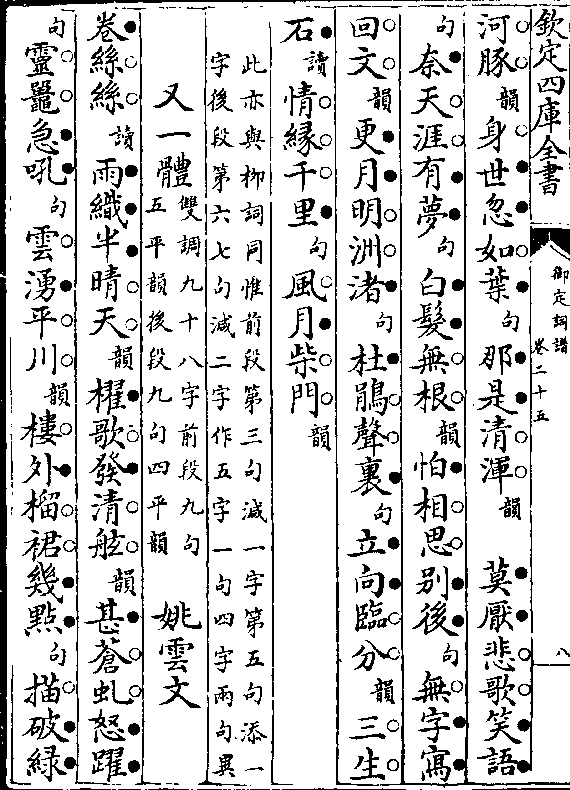 欽定四庫全書
御定詞譜 卷二十五
八
河豚韻身世忽如葉句那是清渾韻 莫厭悲歌笑語
句奈天涯有夢句白髮無根韻怕相思别後句無字寫
回文韻更月明洲渚句杜鵑聲裏句立向臨分韻三生
石讀情緣千里句風月柴門韻
此亦與柳詞同惟前段第三句減一字第五句添一
字後段第六七句減二字作五字一句四字兩句異
又一體 雙調九十八字前段九句
五平韻後段九句四平韻 姚雲文
卷絲絲讀雨織半晴天韻櫂歌發清舷韻甚蒼虬怒躍
句靈鼉急吼句雲湧平川韻樓外榴裙幾點句描破綠